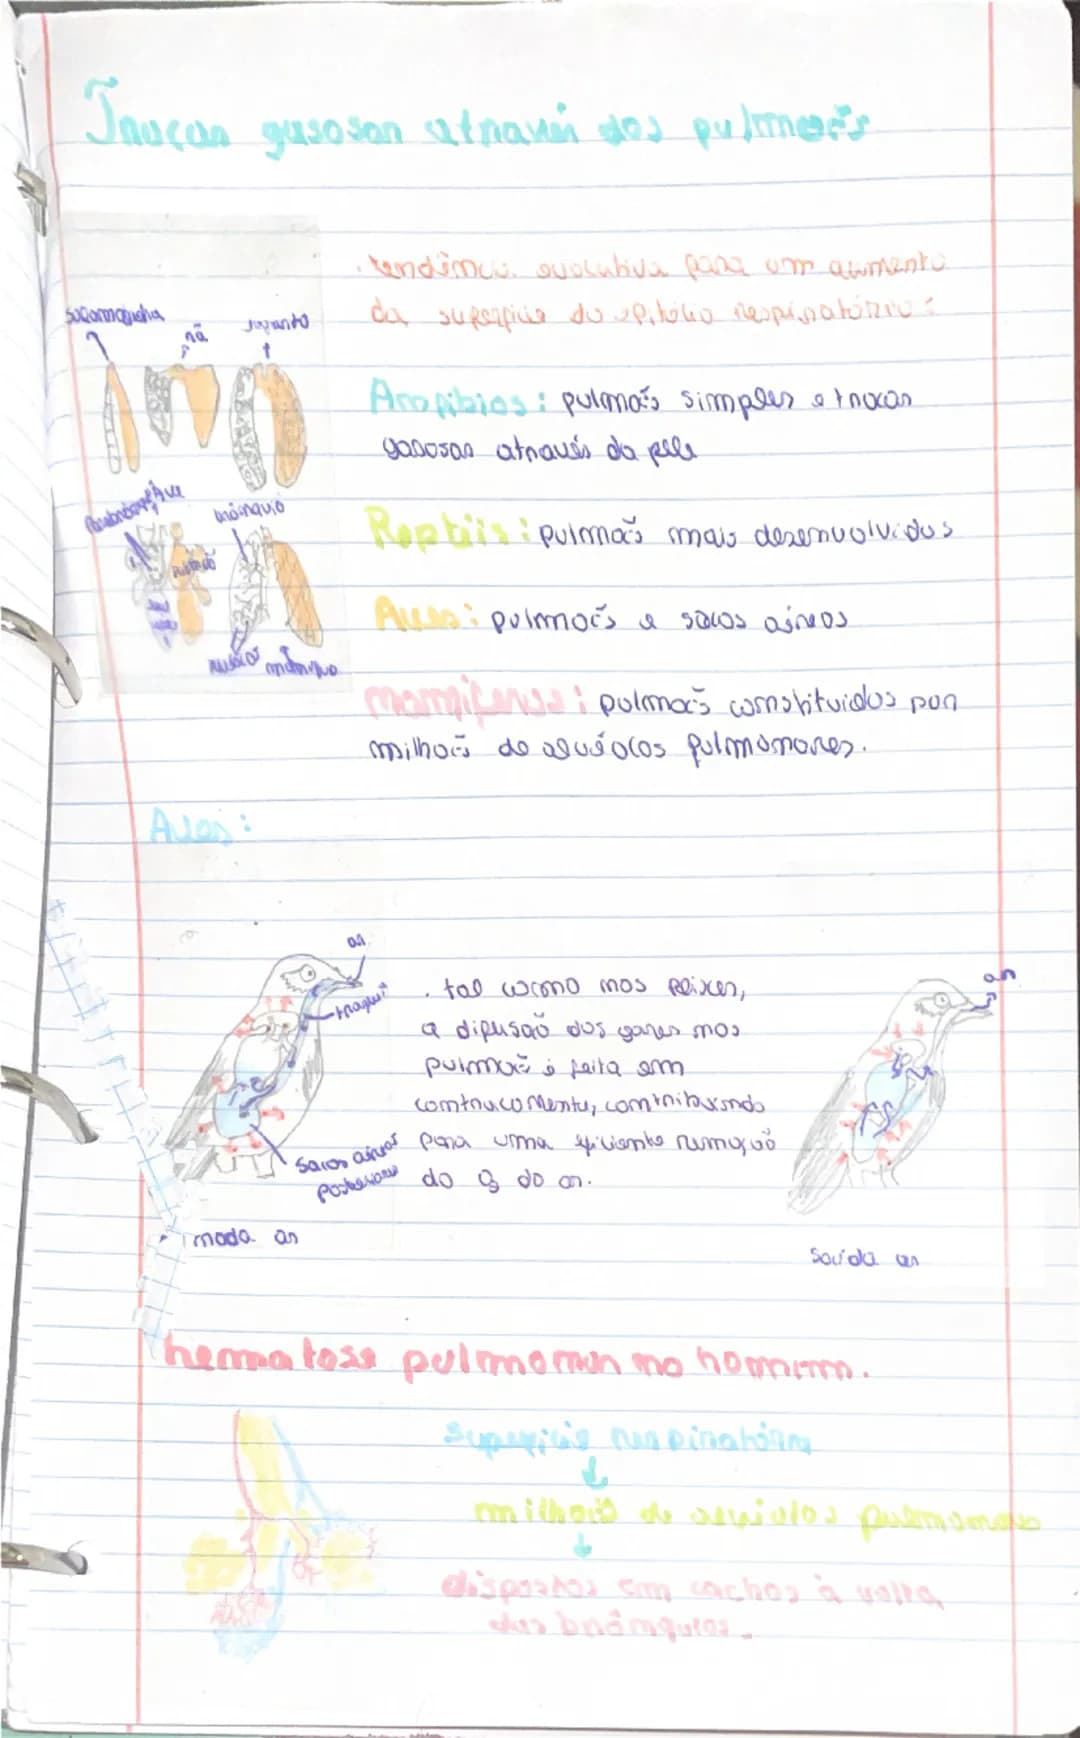 Trocas gasosas através dos pulmões
. tendência evolutiva para um aumento
da superfície do epitélio respiratório:
salamandra
rã
Anfíbios: pulmões simples e trocas
gasosas através da pele
Ave
brônquio
Répteis: pulmões mais desenvolvidos
Aves: pulmões e sacos aéreos
mamíferos: pulmões constituidos por
milhões de alvéolos pulmonares.
Aves:
ar
traqueia
sacos aéreos
posteriores
. tal como nos peixes,
a difusão dos gases nos
pulmões é feita em
contracorrente, contribuindo
para uma eficiente remoção
do O2 do ar.
ar
entrada ar
Saída ar
hematose pulmonar no homem.
superfície respiratória
↓
milhões de alvéolos pulmonares
↓
dispostos em cachos à volta
dos brônquios.